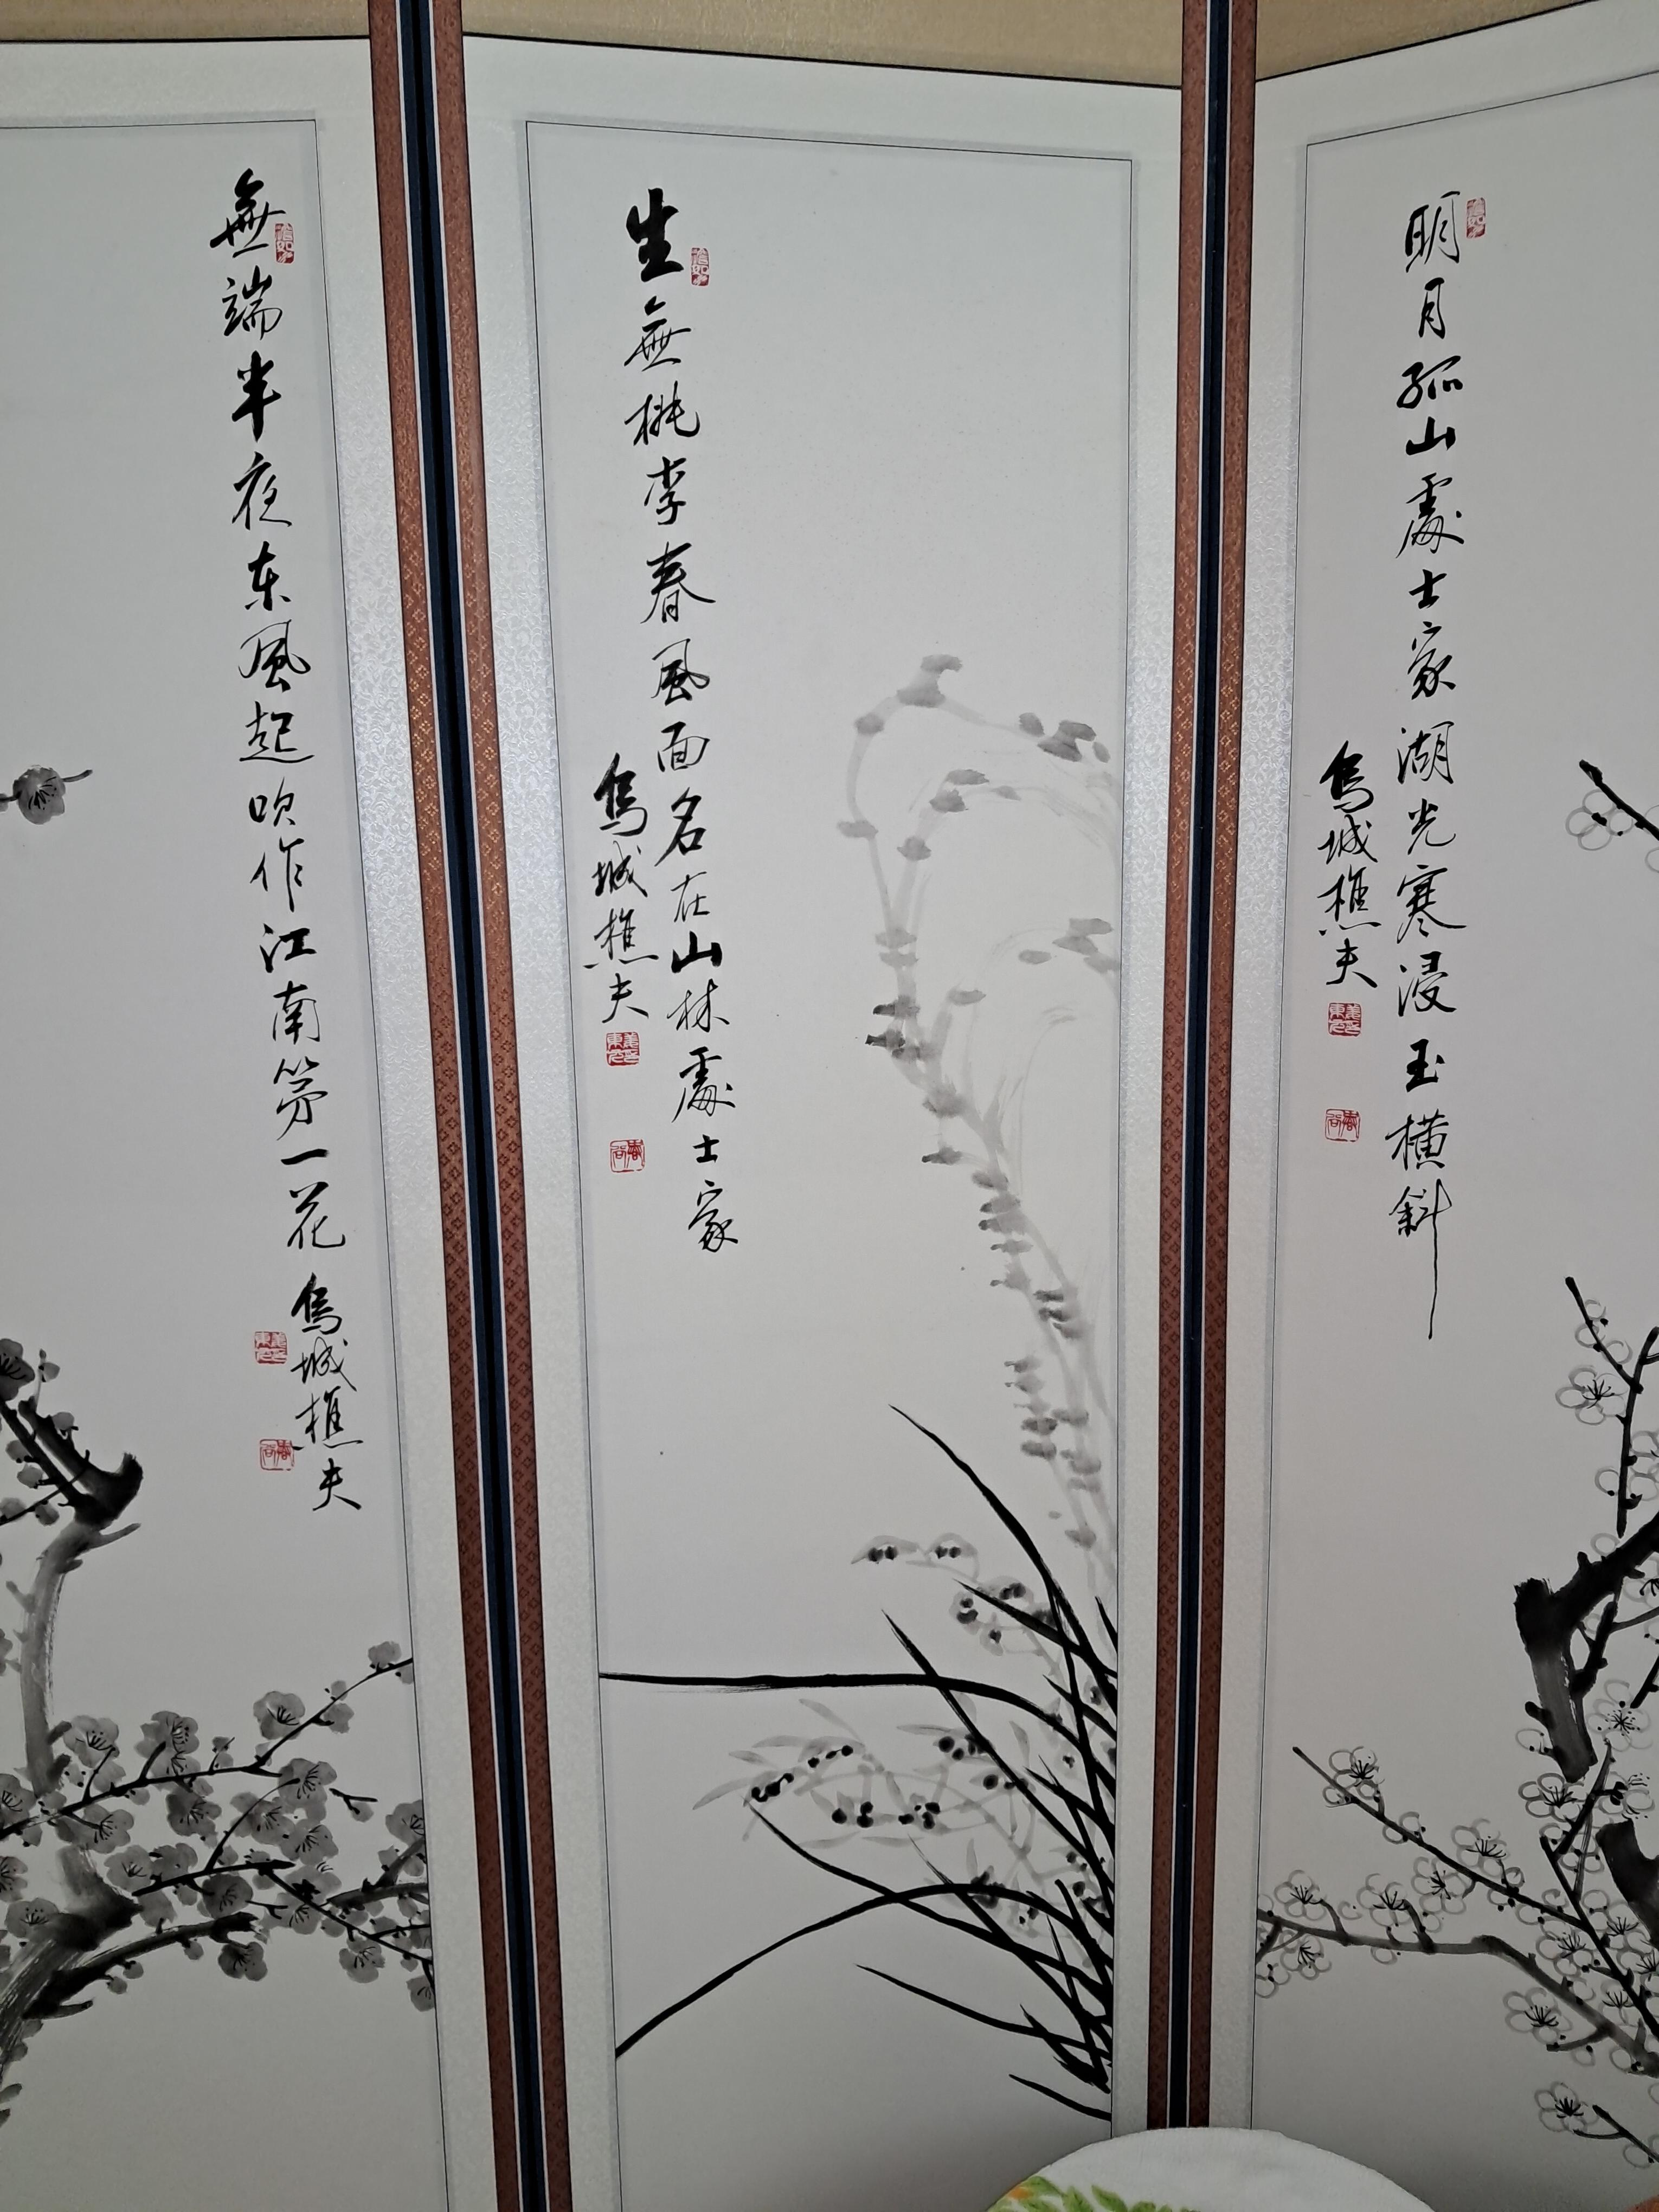 明月孤山處士家湖光寒浸玉橫斜
烏城樵夫
生無桃李春風面名在山林處士家
烏城樵夫
無端半夜东風起吹作江南第一花
烏城樵夫